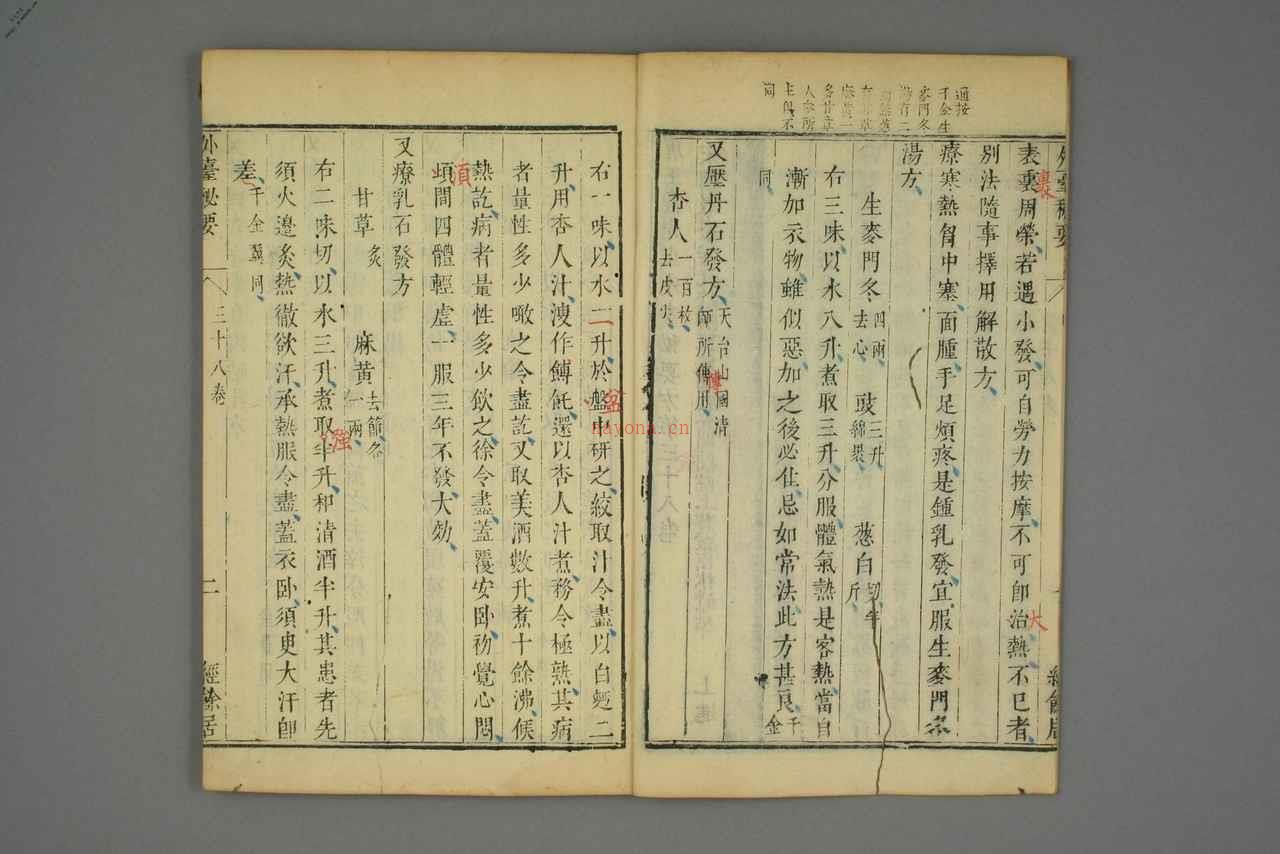 通按
千金生
麥門冬
湯有二
甘草
麻黃二
多甘草
人參所
主與不
同
表裏周榮若遇小發可自勞力按摩不可卽治熱不已者
裏
大
別法隨事擇用解散方
療寒熱胷中塞面腫手足煩疼是鍾乳發宜服生麥門冬
湯方
生麥門冬四兩去心 豉三升綿裹 葱白切半斤
右三味以水八升煮取三升分服體氣熱是客熱當自
漸加衣物雖似惡加之後必佳忌如常法此方甚良千金
同
又壓丹石發方天台山國清師所傳用
杏人一百枚去皮尖
右一味以水二升於盤中研之絞取汁令盡以白麪二
盆
升用杏人汁溲作餺飥還以杏人汁煮務令極熟其病
者量性多少噉之令盡訖又取美酒數升煮十餘沸候
熱訖病者量性多少飲之徐令盡蓋覆安卧初覺心悶
須
頃間四體輕虛一服三年不發大効
又療乳石發方
甘草炙 麻黃去節各一兩
強
右二味切以水三升煮取半升和清酒半升其患者先
須火邊炙熱徹欲汗承熱服令盡蓋衣卧須臾大汗卽
差千金翼同
外臺秘要 三十八卷 二 經餘居
nayona.cn